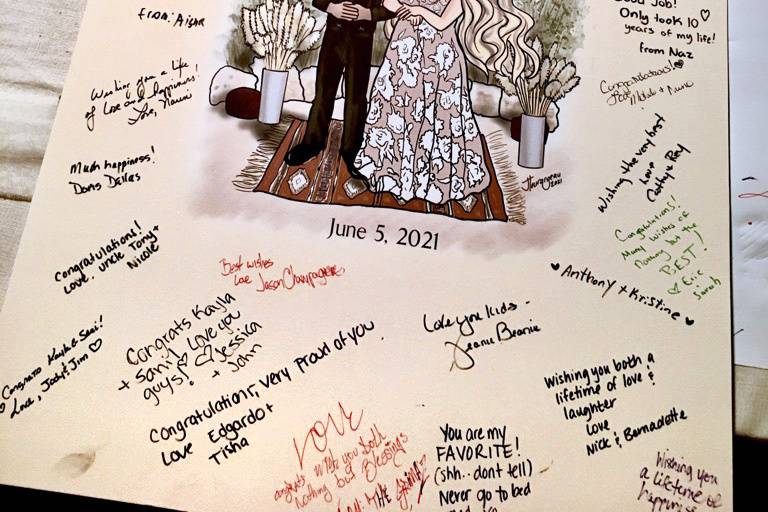 from: Aisha
Wishing you a life
of love and happiness!
Love,
Much happiness!
Doris Dallas
Congratulations!
Love, Uncle Tony +
Nicole
Congrats Kayla & Sami!
Love, Jody & Jim ♡
Best wishes
Love Jason Champagne
Congrats Kayla
+ Sami! I love you
guys! ♡ Jessica
+ John
Congratulations, very proud of you.
Love Edgardo +
Tisha
June 5, 2021
2021
Love you kids -
Jeanie Beanie
LOVE
congrats wish you both
nothing but Blessings
You are my
FAVORITE!
(shh.. dont tell)
Never go to bed
Good Job!
Only took 10 ♡
years of my life!
from Naz
Congratulations! ♡
Wishing the very best
Love
Cathy & Ray
Congratulations!
Many wishes of
nothing but the
BEST!
♡ Eric
Sarah
♥ Anthony + Kristine ♥
Wishing you both a
lifetime of love &
laughter
Love
Nick & Bernadette
Wishing you
a lifetime of